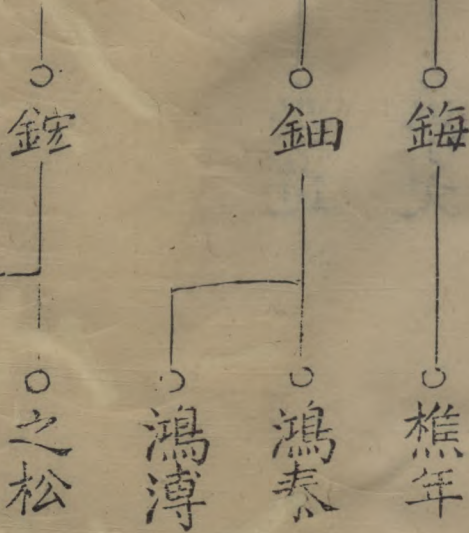 鋂
鈿
鋐
樵年
鴻泰
鴻溥
之松